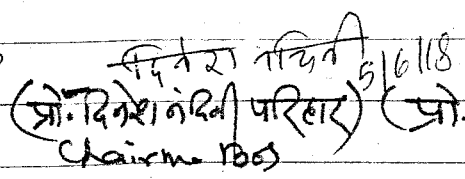 दिनेश नंदिनी 5/6/18
(प्रो. दिनेश नंदिनी परिहार) (प्रो.
Chairm. BoS